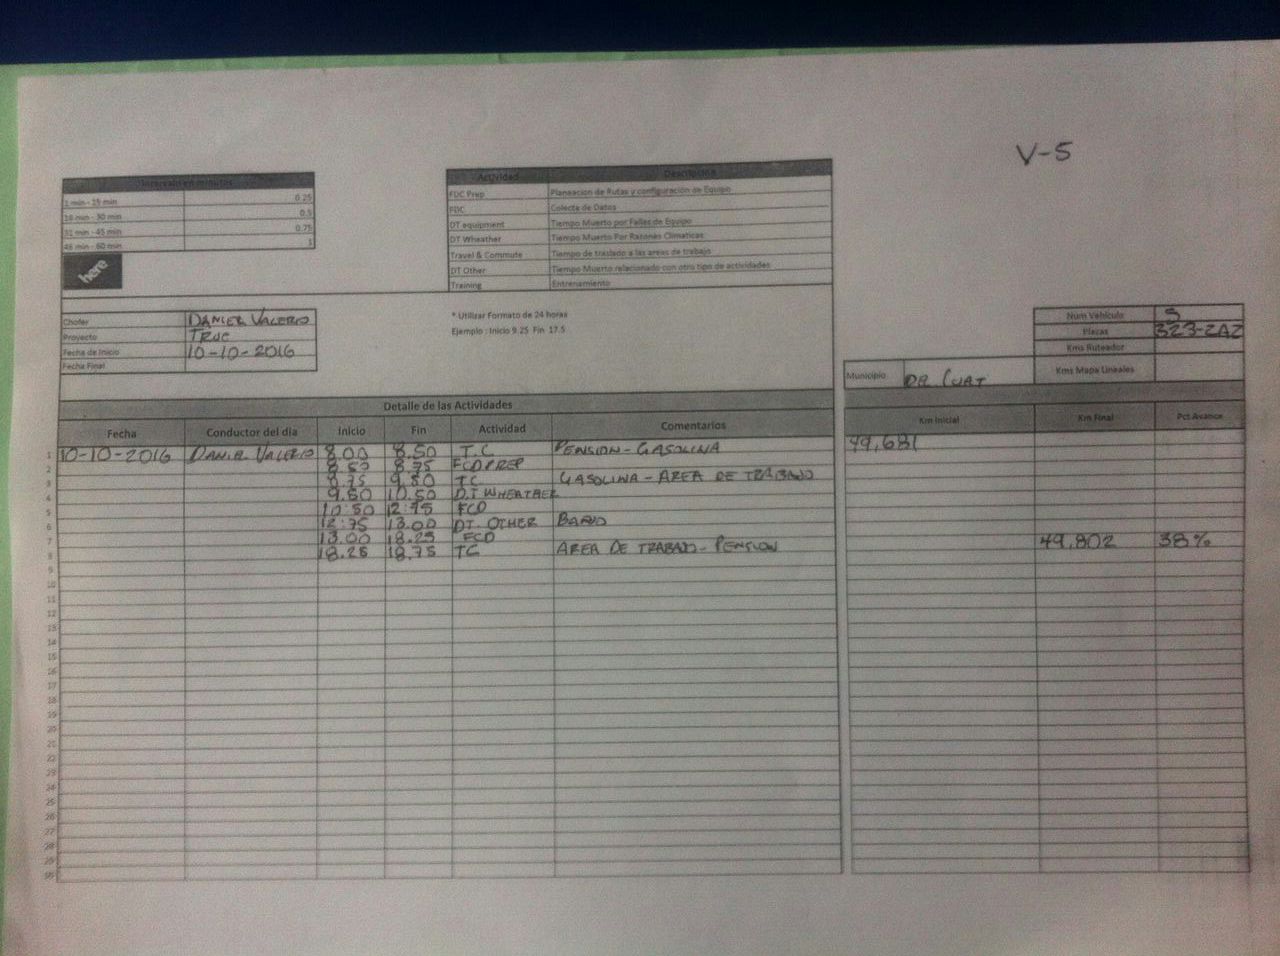 V-5
Intervalo en minutos
1 min - 15 min 0.25
16 min - 30 min 0.5
31 min - 45 min 0.75
46 min - 60 min 1
here
Actividad Descripción
FDC Prep Planeacion de Rutas y configuración de Equipo
FDC Colecta de Datos
DT equipment Tiempo Muerto por Fallas de Equipo
DT Wheather Tiempo Muerto Por Razones Climaticas
Travel & Commute Tiempo de traslado a las areas de trabajo
DT Other Tiempo Muerto relacionado con otro tipo de actividades
Training Entrenamiento
* Utilizar Formato de 24 horas
Ejemplo : Inicio 9.25 Fin 17.5
Chofer DANIEL VALERIO
Proyecto TRUE
Fecha de Inicio 10-10-2016
Fecha Final
Num Vehiculo 5
Placas 323-ZAZ
Kms Ruteador
Kms Mapa Lineales
Municipio DR.
Detalle de las Actividades
Fecha Conductor del dia Inicio Fin Actividad Comentarios Km Inicial Km Final Pct Avance
1 10-10-2016 DANIEL VALERIO 8.00 8.50 T.C PENSION-GASOLINA 49,681
2 8.50 8.75 FCD PREP
3 8.75 9.50 TC GASOLINA-AREA DE TRABAJO
4 9.50 10.50 D.T WHEATHER
5 10:50 12:75 FCD
6 12:75 13.00 DT. OTHER BAÑO
7 13.00 18.25 FCD 49,802 38%
8 18.25 18.75 TC AREA DE TRABAJO-PENSION
9
10
11
12
13
14
15
16
17
18
19
20
21
22
23
24
25
26
27
28
29
30